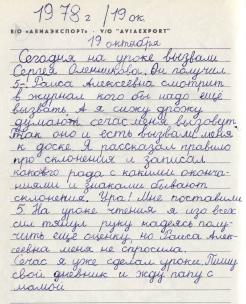 1978 г /19 ок.
В/О «АВИАЭКСПОРТ» · V/O "AVIAEXPORT"
19 октября
Сегодня на уроке вызвали
Сергея Оленникова. Он получил
5- Раиса Алексеевна смотрит
в журнал кого бы надо ещё
вызвать. А я сижу дрожу
думаю сечас меня вызовут
Так оно и есть вызвали меня
к доске. Я рассказал правило
про склонения и записал
какого рода с какими оконча-
ниями и знаками бывают
склонения. Ура! Мне поставили
5. На уроке чтения я изо всех
сил тянул руку надеясь полу-
чить ещё оценку, но Раиса Алек-
сеевна меня не спросила.
Сечас я уже сделал уроки. Пишу
свой дневник и жду папу с
мамой